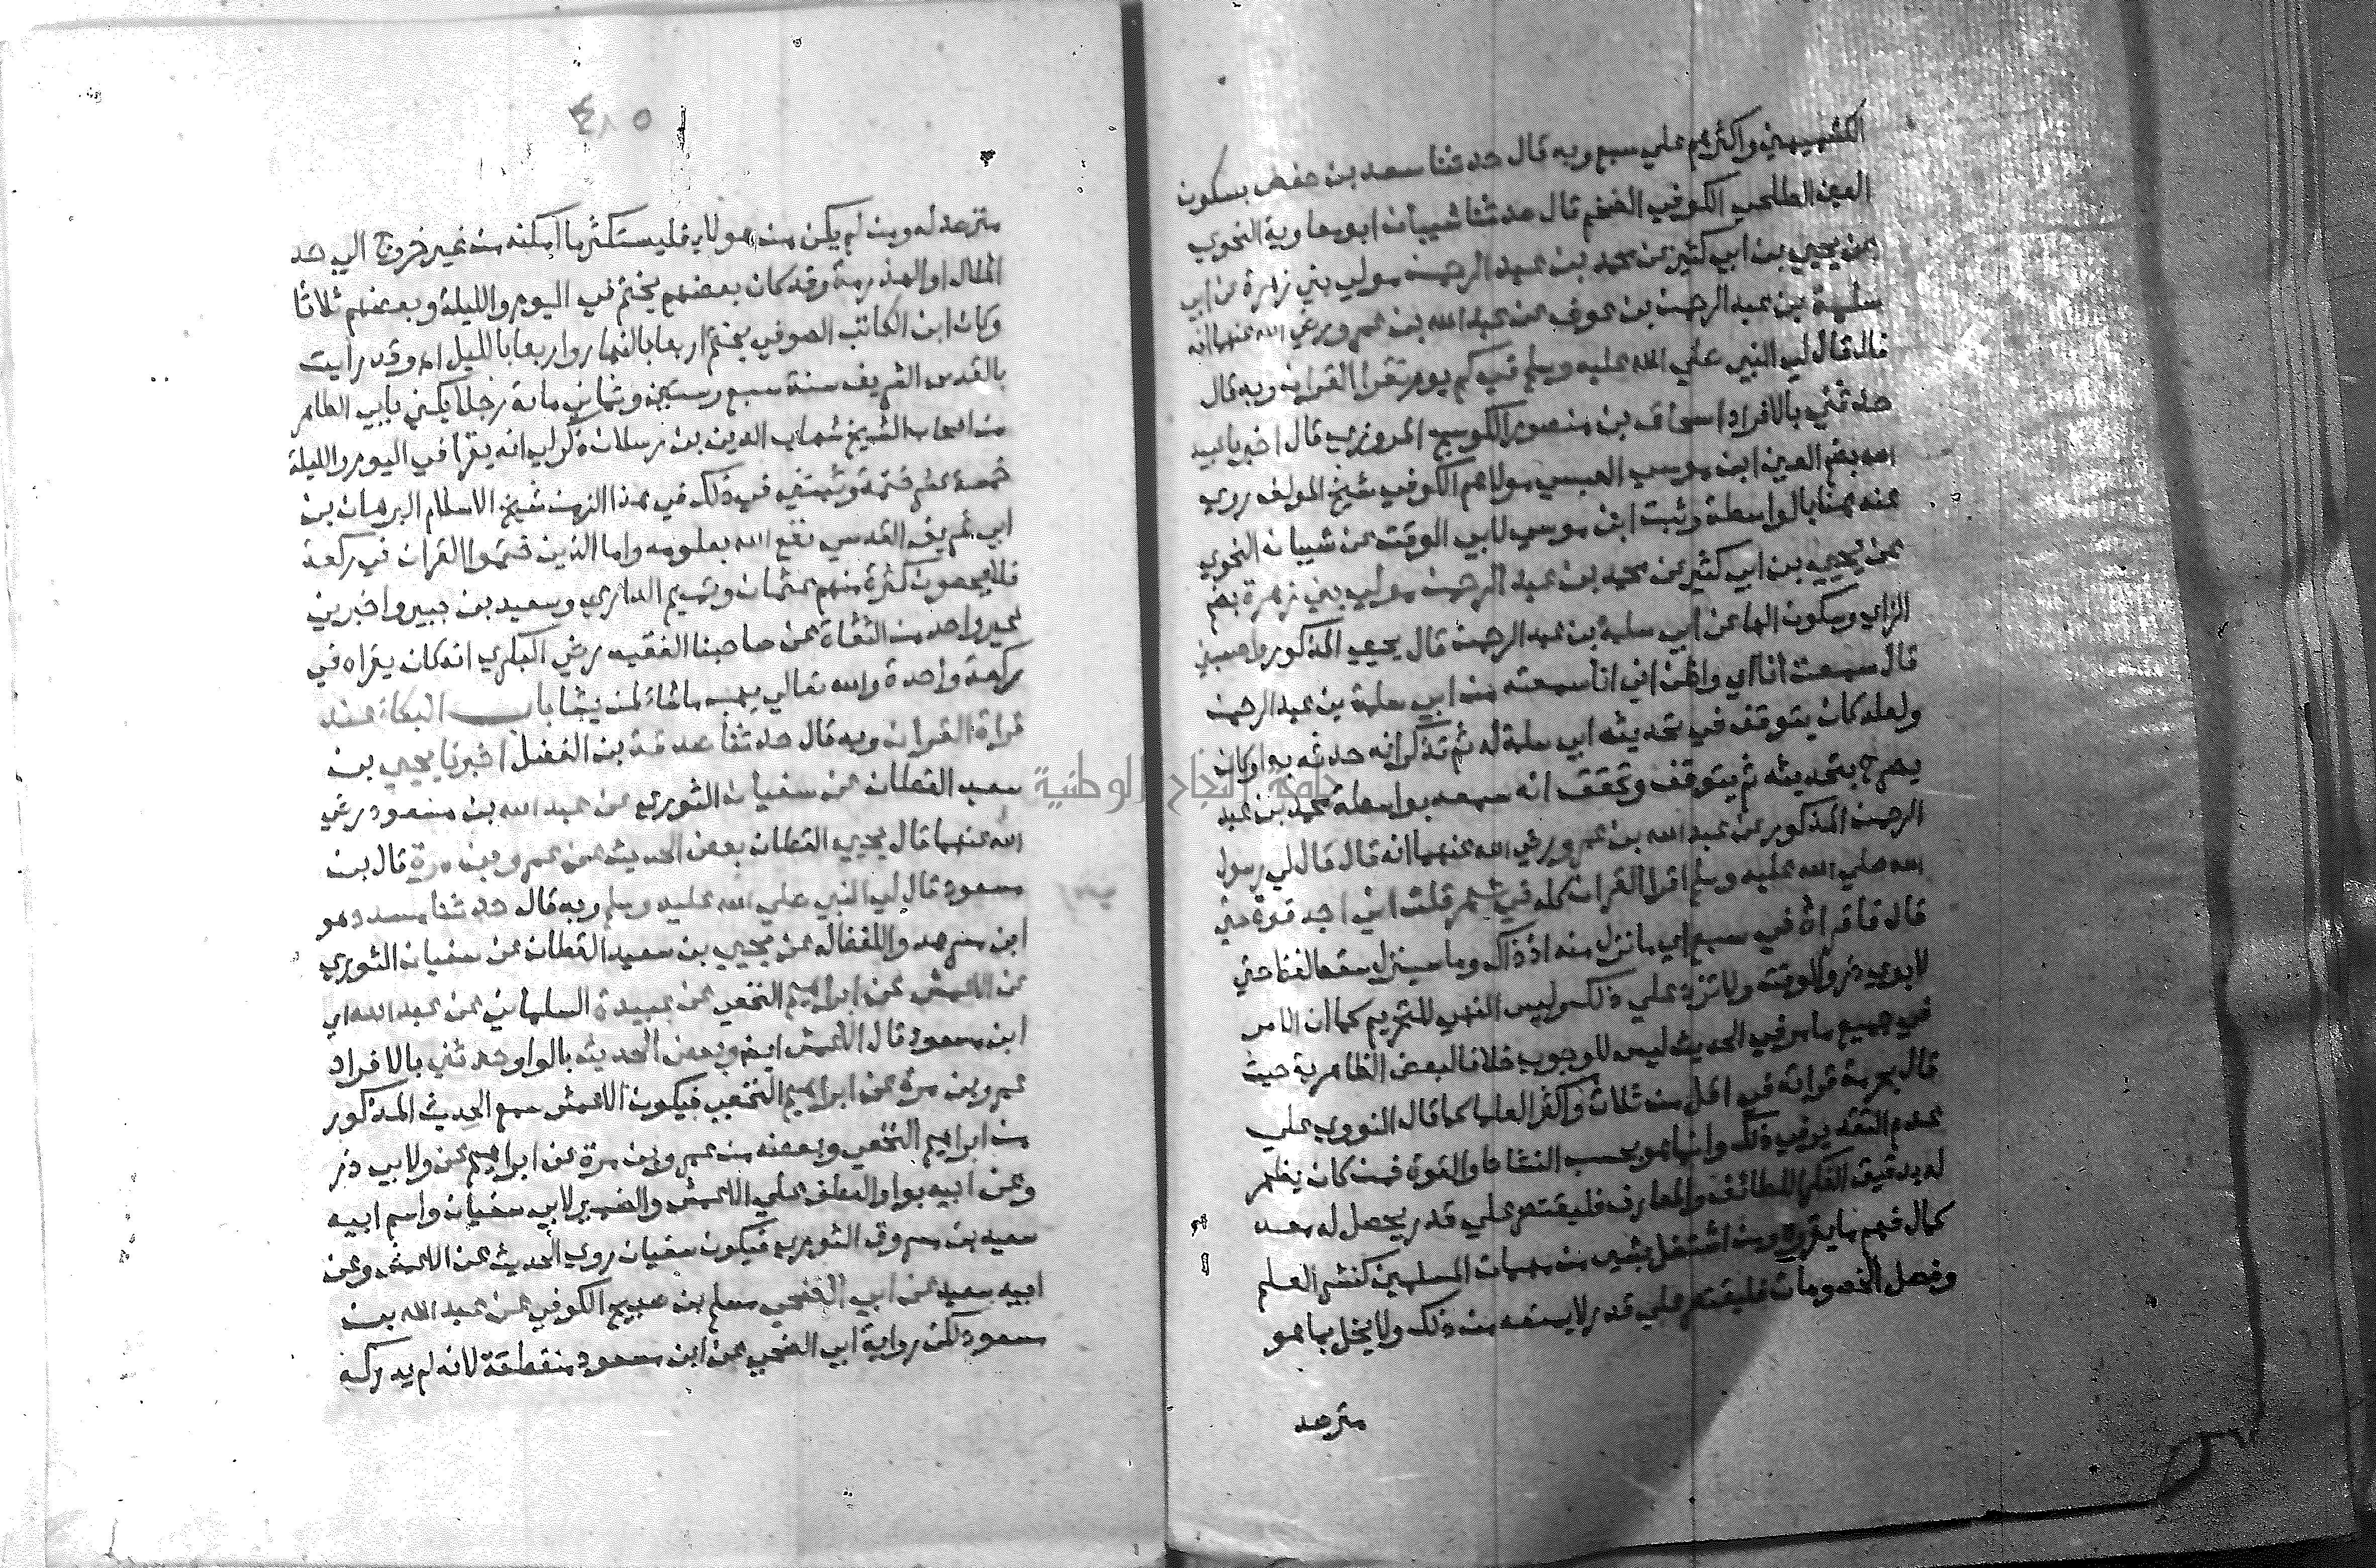 الكشميهني واكثرهم علي سبع وبه قال حدثنا سعد بن حفص بسكون
العين الطلحي الكوفي الضخم قال حدثنا شيبان ابو معاوية النحوي
عن يحيي بن ابي كثير عن محمد بن عبد الرحمن مولي بني زهرة عن ابي
سلمة بن عبد الرحمن بن عوف عن عبد الله بن عمرو رضي الله عنهما انه
قال قال لي النبي صلي الله عليه وسلم في كم يوم تقرا القران وبه قال
حدثني بالافراد اسحاق بن منصور الكوسج المروزي قال اخبرنا عبيد
الله بضم العين ابن موسي العبسي مولاهم الكوفي شيخ المولف روي
عنه هنا بالواسطة وثبت ابن موسي لابي الوقت عن شيبان النحوي
عن يحيي بن ابي كثير عن محمد بن عبد الرحمن مولي بني زهرة بضم
الزاي وسكون الها عن ابي سلمة بن عبد الرحمن قال يحيي المذكور واحسبني
قال سمعت انا اي واظن اني انا سمعته من ابي سلمة بن عبد الرحمن
ولعله كان يتوقف في تحديثه ابي سلمة له ثم تذكر انه حدثه به او كان
يصرح بتحديثه ثم يتوقف وتحقق انه سمعه بواسطة محمد بن عبد
الرحمن المذكور عن عبد الله بن عمرو رضي الله عنهما انه قال قال لي رسول
الله صلي الله عليه وسلم اقرا القران كله في شهر قلت اني اجد قوة حتي
قال فاقراه في سبع اي ما نزل منه اذ ذاك وما سينزل سقط لفظ حتي
لابوي ذر والوقت ولا تزد علي ذلك وليس النهي للتحريم كما ان الامر
في جميع ما مر في الحديث ليس للوجوب خلافا لبعض الظاهرية حيث
قال بحرمة قراته في اقل من ثلاث واكثر العلما كما قال النووي علي
عدم التقدير في ذلك وانما هو بحسب النشاط والقوة فمن كان يظهر
له بدقيق الفكر اللطائف والمعارف فليقتصر علي قدر يحصل له معه
كمال فهم ما يقروه ومن اشتغل بشي من مهمات المسلمين كنشر العلم
وفصل الخصومات فليقتصر علي قدر لا يمنعه من ذلك ولا يخل بما هو
مترصد
٤٨٥
مترصد له ومن لم يكن من هولاء فليستكثر ما امكنه من غير خروج الي حد
الملال او الهذرمة وقد كان بعضهم يختم في اليوم والليلة وبعضهم ثلاثا
وكان ابن الكاتب الصوفي يختم اربعا بالنهار واربعا بالليل اه وقد رايت
بالقدس الشريف سنة سبع وستين وثماني ماية رجلا يكني بابي الطاهر
من اصحاب الشيخ شهاب الدين بن رسلان ذكر لي انه يقرا في اليوم والليلة
خمسة عشر ختمة وثبتني في ذلك في هذا الزمن شيخ الاسلام البرهان بن
ابي شريف القدسي نفع الله بعلومه واما الذين ختموا القران في ركعة
فلا يحصون كثرة منهم عثمان وتميم الداري وسعيد بن جبير واخبرني
غير واحد من الثقاة عن صاحبنا الفقيه رضي البكري انه كان يقراه في
ركعة واحدة والله تعالي يهب ما شاء لمن يشا باب البكاء عند
قراة القران وبه قال حدثنا صدقة بن الفضل اخبرنا يحيي بن
سعيد القطان عن سفيان الثوري عن عبد الله بن مسعود رضي
الله عنهما قال يحيي القطان بعض الحديث عن عمرو بن مرة قال بن
مسعود قال لي النبي صلي الله عليه وسلم وبه قال حدثنا مسدد هو
ابن مسرهد واللفظ له عن يحيي بن سعيد القطان عن سفيان الثوري
عن الاعمش عن ابراهيم النخعي عن عبيدة السلماني عن عبد الله اي
ابن مسعود قال الاعمش ايض وبعض الحديث بالواو حدثني بالافراد
عمرو بن مرة عن ابراهيم النخعي فيكون الاعمش سمع الحديث المذكور
من ابراهيم النخعي وبعضه من عمرو بن مرة عن ابراهيم عن ولابي ذر
وعن ابيه بواو العطف علي الاعمش والضمير لابي سفيان واسم ابيه
سعيد بن مسروق الثوري فيكون سفيان روي الحديث عن الاعمش وعن
ابيه سعيد عن ابي الضحي مسلم بن صبيح الكوفي عن عبد الله بن
مسعود لكن رواية ابي الضحي عن ابن مسعود منقطعة لانه لم يدركه
جامعة النجاح الوطنية